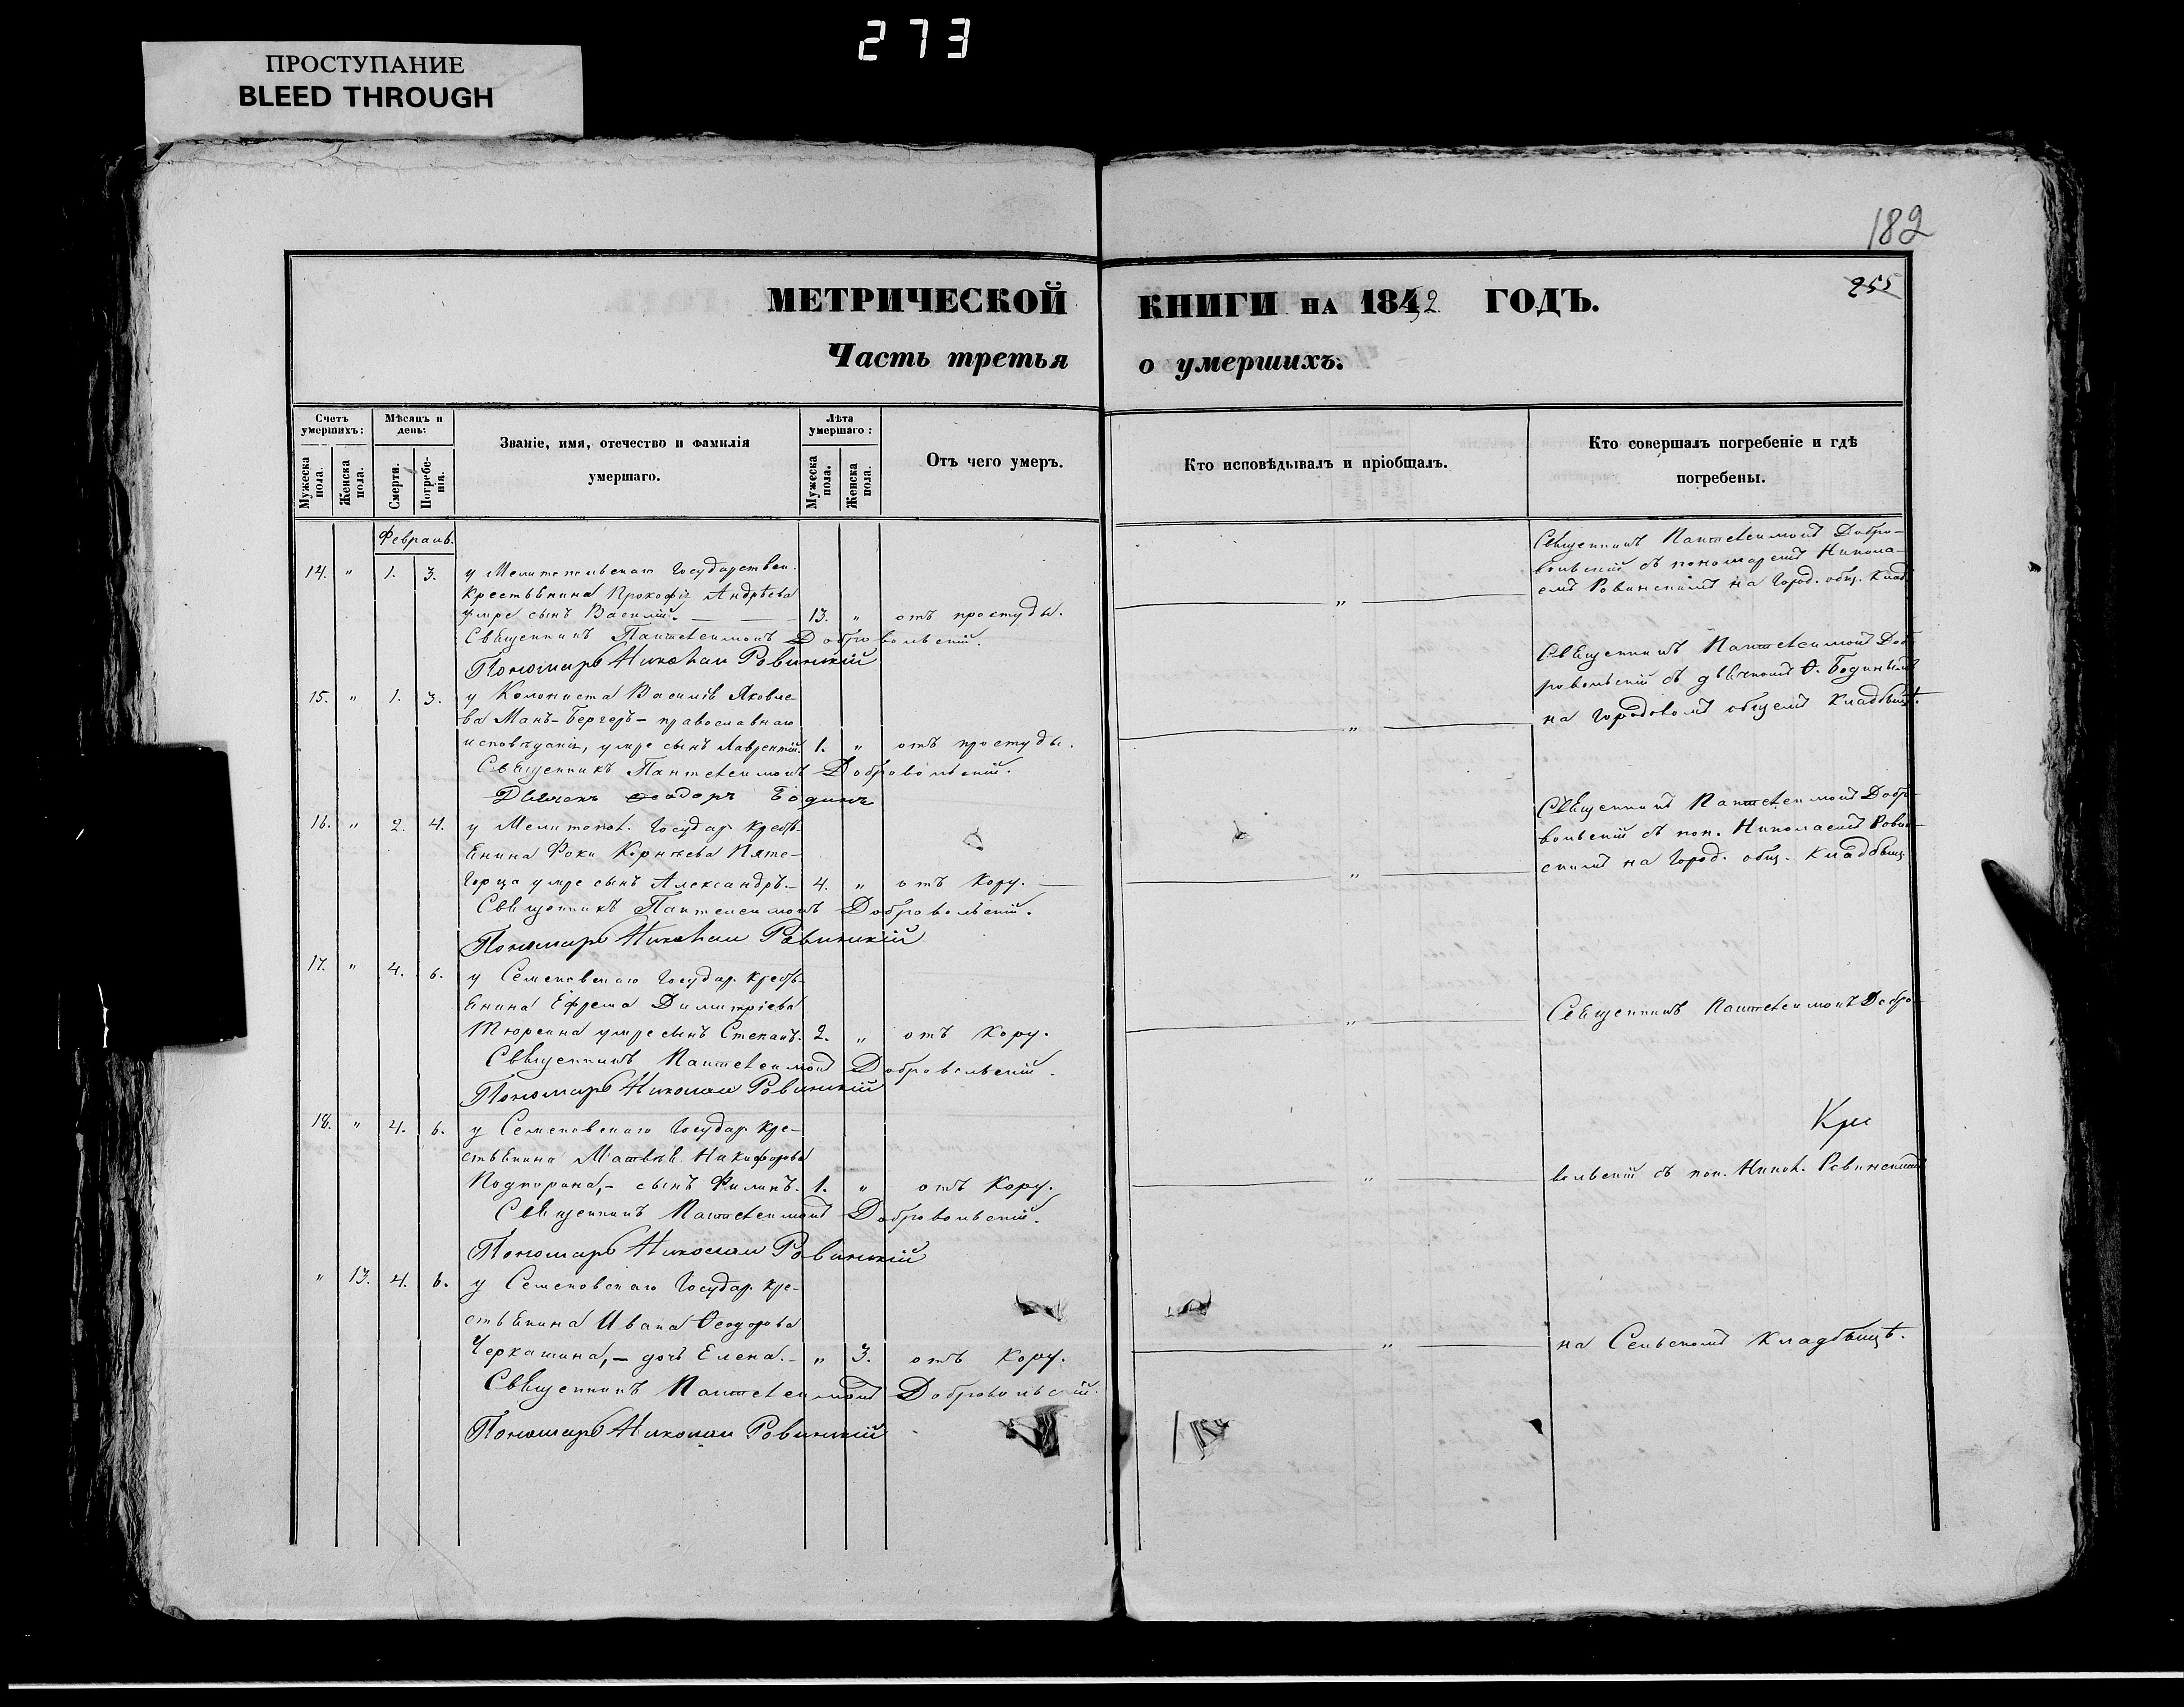 273
ПРОСТУПАНИЕ
BLEED THROUGH
182
255
МЕТРИЧЕСКОЙ КНИГИ НА 1852 ГОДЪ.
Часть третья о умершихъ.
Счетъ умершихъ:
Мужеска пола.
Женска пола.
Мѣсяцъ и день:
Смерти.
Погребенія.
Званіе, имя, отечество и фамилія
умершаго.
Лѣта умершаго:
Мужеска пола.
Женска пола.
Отъ чего умеръ.
Кто исповѣдывалъ и пріобщалъ.
Кто совершалъ погребеніе и гдѣ
погребены.
Февраль.
14. " 1. 3. у Мелитопольскаго Государствен.
крестьянина Прокофія Андрѣева
умре сынъ Василій. 13. " отъ простуды. "
Священникъ Пантелеимонъ Добровольскій.
Пономарь Николай Ровинскій
Священникъ Пантелеимонъ Добро-
вольскій съ пономаремъ Никола-
емъ Ровинскимъ на Город. общ. клад.
15. " 1. 3. у Колониста Василія Яковле-
ва Манъ-Бергеръ - православнаго
исповѣданія, умре сынъ Лаврентій. 1. " отъ простуды. "
Священникъ Пантелеимонъ Добровольскій.
Дьячекъ Феодоръ Бодинъ
Священникъ Пантелеимонъ Доб-
ровольскій съ дьячкомъ Ѳ. Бодинымъ
на городовомъ общемъ кладбищѣ.
16. " 2. 4. у Мелитопол. Государ. крест-
янина Фоки Корнѣева Пяте-
горца умре сынъ Александръ. - 4. " отъ Кору. "
Священникъ Пантелеимонъ Добровольскій.
Пономарь Николай Ровинскій
Священникъ Пантелеимонъ Добро-
вольскій съ пон. Николаемъ Ровин-
скимъ на Город. общ. Кладбищ.
17. " 4. 6. у Семеновскаго Государ. крест-
янина Ефрема Димитріева
Тюрина умре сынъ Степанъ. 2. " отъ Кору. "
Священникъ Пантелеимонъ Добровольскій.
Пономарь Николай Ровинскій
Священникъ Пантелеимонъ Добро-
18. " 4. 6. у Семеновскаго Государ. кре-
стьянина Матвѣя Никифорова
сынъ Филипъ. 1. " отъ Кору. "
Священникъ Пантелеимонъ Добровольскій.
Пономарь Николай Ровинскій
вольскій съ пон. Никол. Ровинскимъ
" 13. 4. 6. у Семеновскаго Государ. кре-
стьянина Ивана Ѳеодорова
Черкашина, - дочь Елена. - " 3. отъ Кору. "
Священникъ Пантелеимонъ Добровольскій.
Пономарь Николай Ровинскій
на Сельскомъ кладбищѣ.